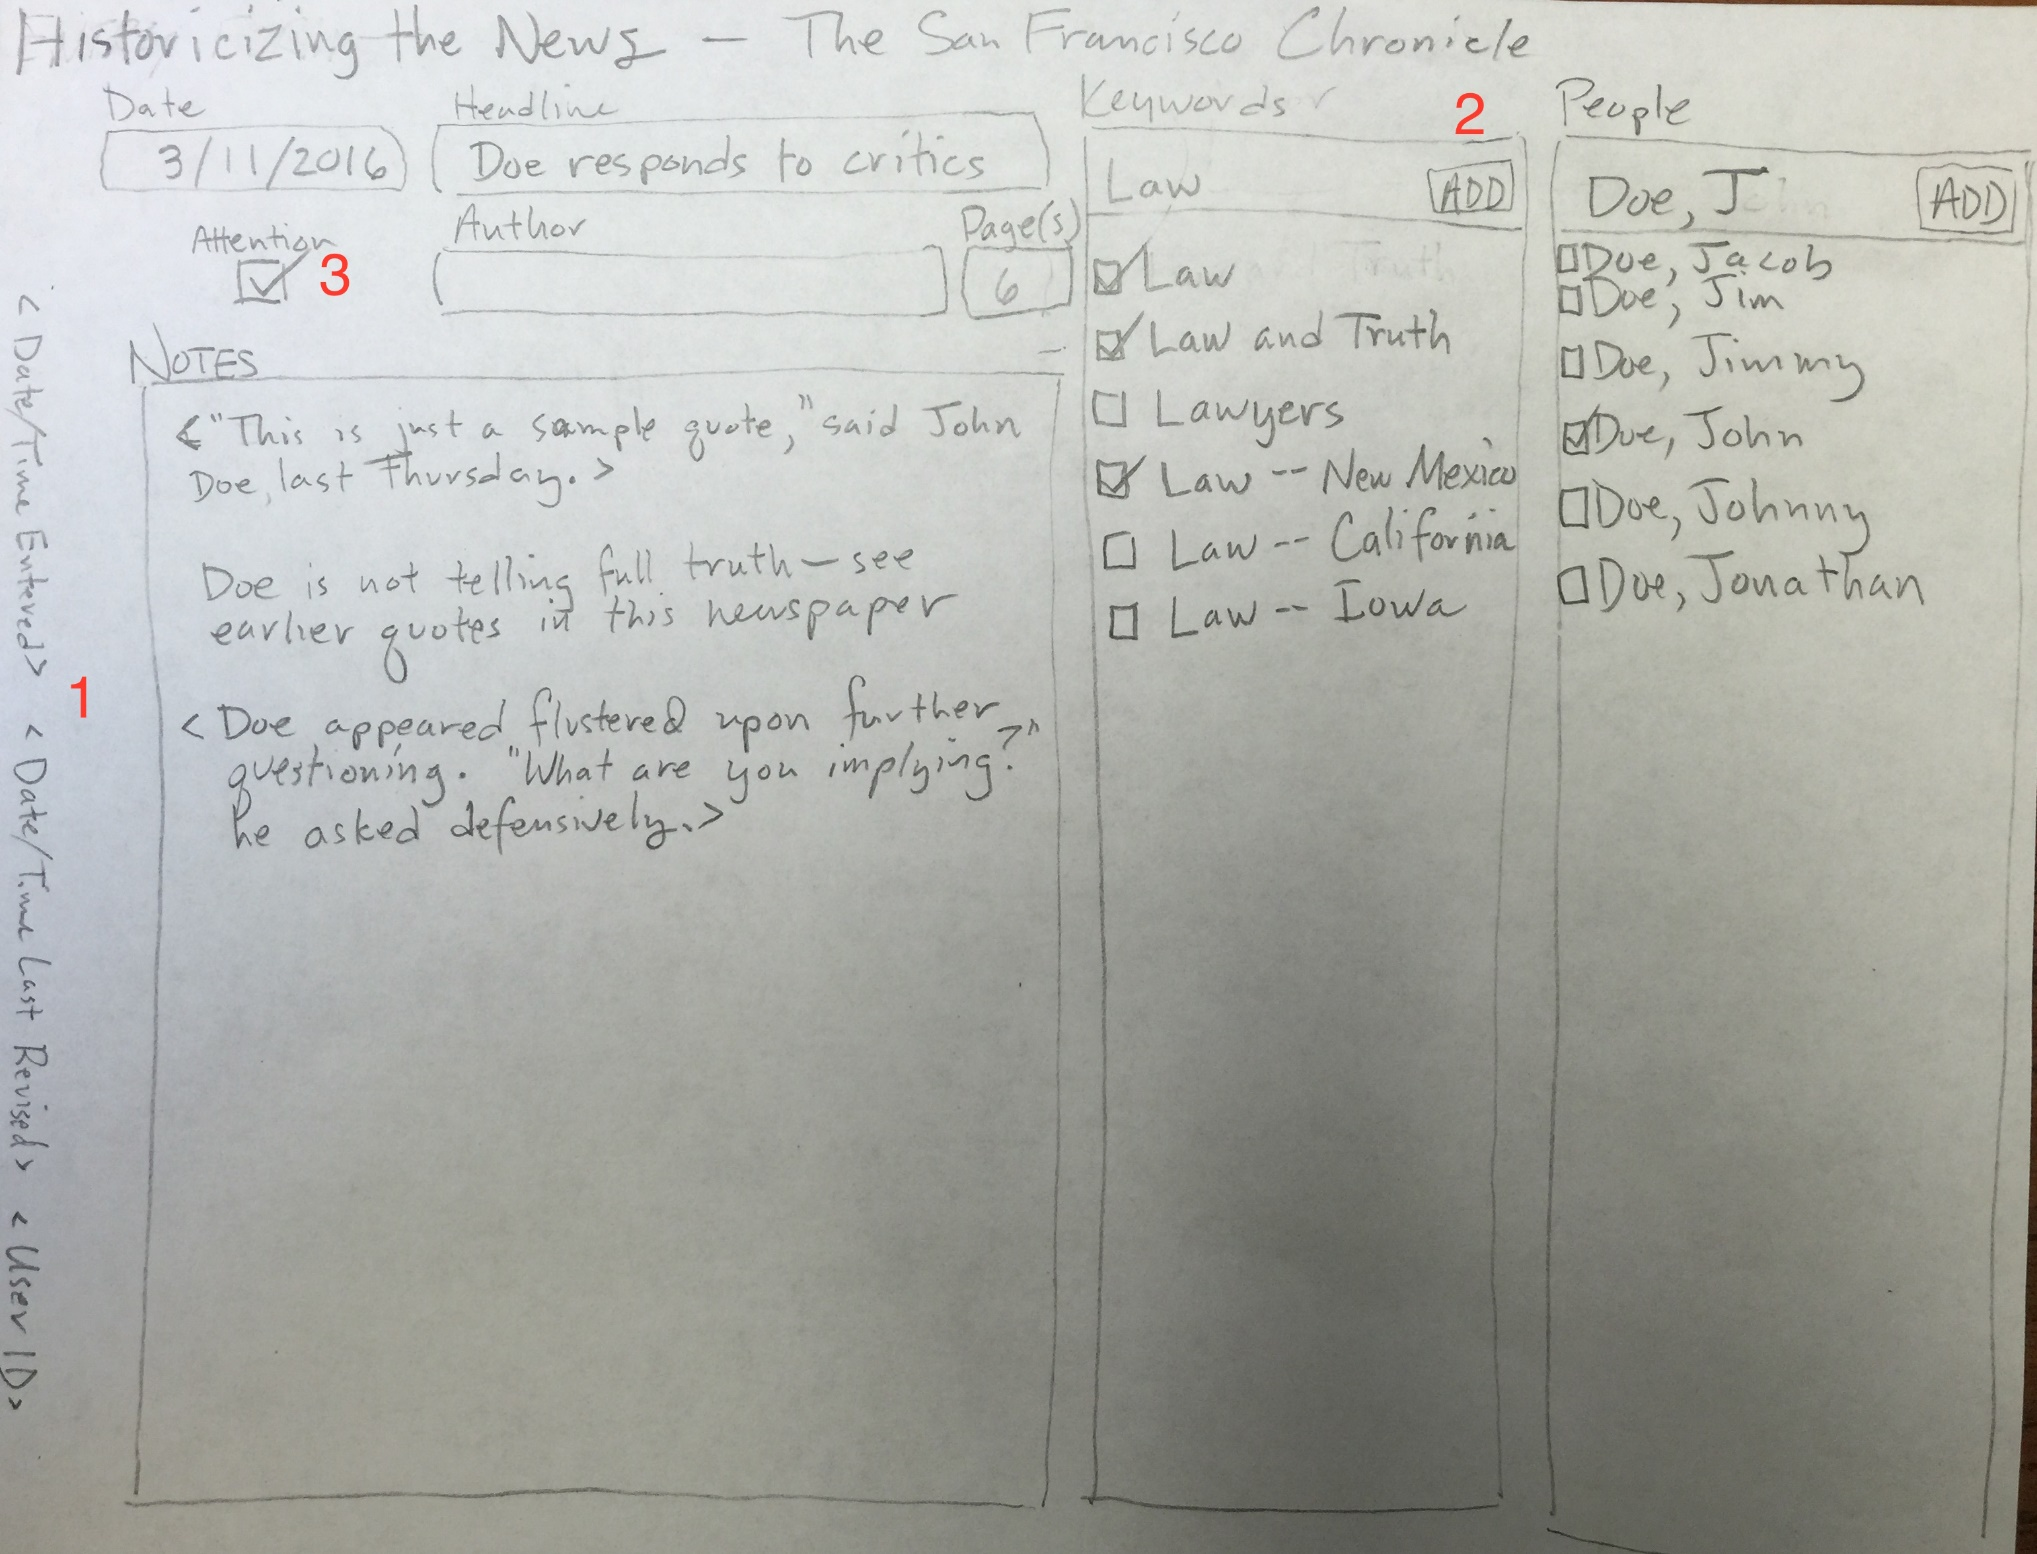 Historicizing the News — The San Francisco Chronicle
Date
3/11/2016
Headline
Doe responds to critics
Attention
3
Author
Page(s)
6
NOTES
<"This is just a sample quote," said John
Doe, last Thursday.>
Doe is not telling full truth — see
earlier quotes in this newspaper
<Doe appeared flustered upon further
questioning. "What are you implying?"
he asked defensively.>
Keywords
2
Law
ADD
Law
Law and Truth
Lawyers
Law -- New Mexico
Law -- California
Law -- Iowa
People
Doe, J
ADD
Doe, Jacob
Doe, Jim
Doe, Jimmy
Doe, John
Doe, Johnny
Doe, Jonathan
1
<Date/Time Entered> <Date/Time Last Revised> <User ID>